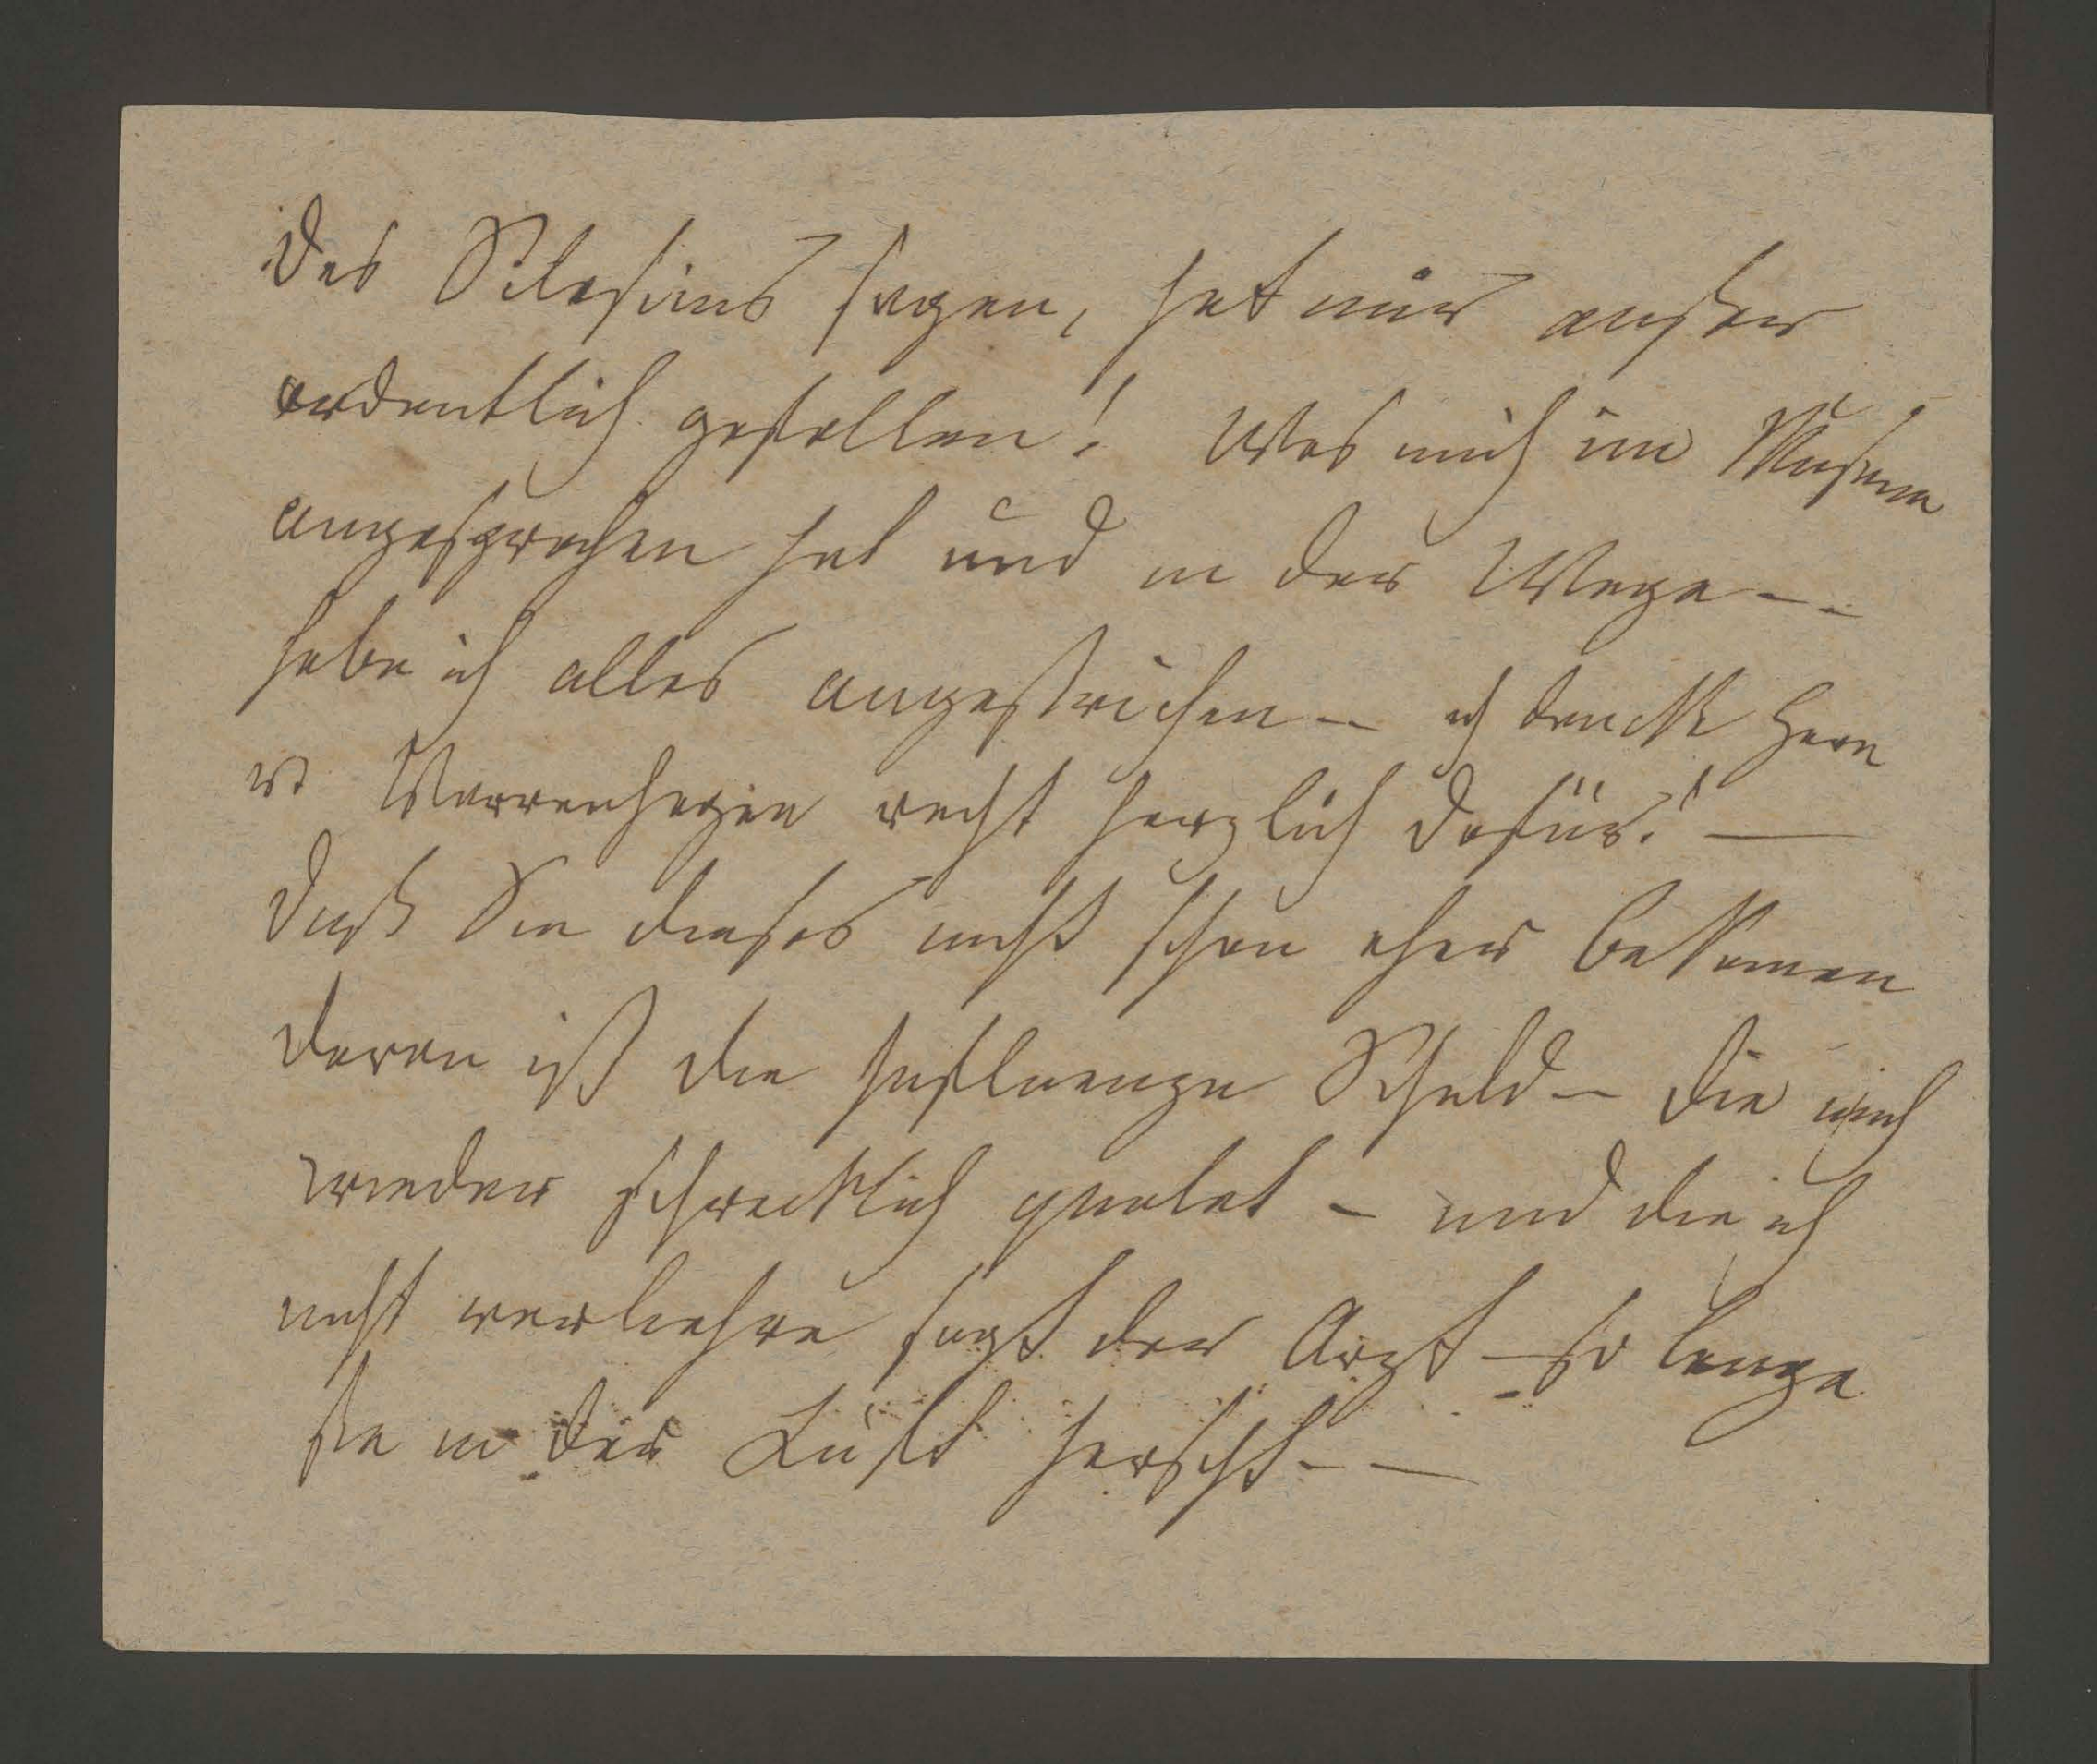 Des Silesius sagen, hat mir außer
ordentlich gefallen! Was mich im Museum
angesprochen hat und in der Wage --
habe ich alles angestrichen - ich dancke Herrn
v Varrenhagen recht herzlich dafür! —
daß Sie dieses nicht schon eher bekamen
daran ist die Influenza Schuld - die mich
wieder schrecklich quälet - und die ich
nicht verliehre sagt der Arzt - so lange
sie in der Luft herscht - —